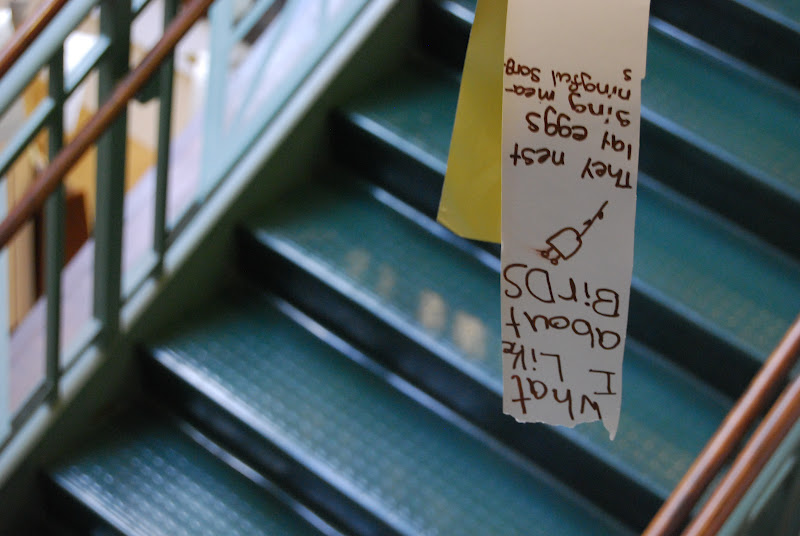 What
I Like
about
BirDS
They nest
lay eggs
sing mea-
ningful song-
s